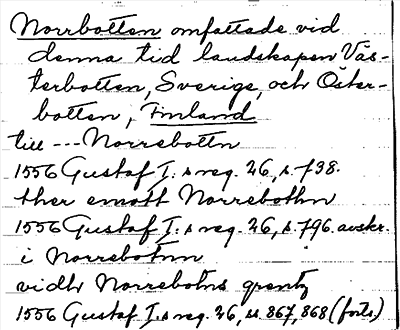 Norrbotten omfattade vid
denna tid landskapen Väs-
terbotten, Sverige, och Öster-
botten, Finland
till --- Norrebottn
1556 Gustaf I:s reg. 26, s. 738.
ther emott Norrebothn
1556 Gustaf I:s reg. 26, s. 796. avskr.
i Norrebotnn
vidh Norrebotns grentz
1556 Gustaf I:s reg. 26, ss. 867, 868 (forts)